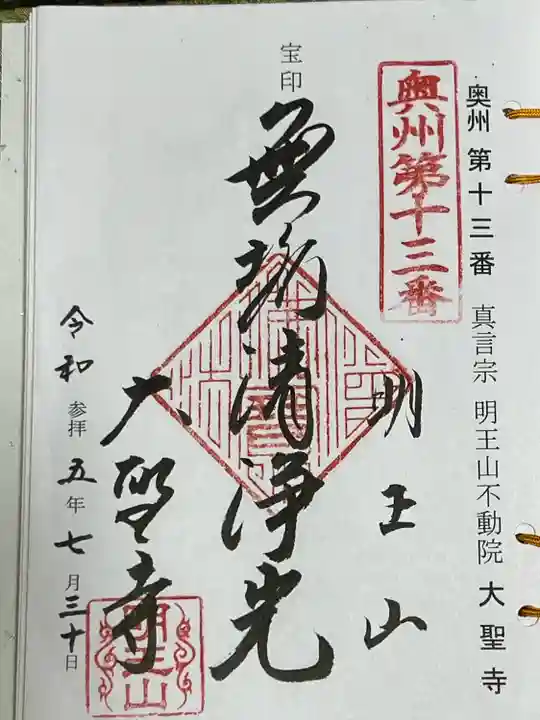 奥州 第十三番 真言宗 明王山不動院 大聖寺
奥州第十三番
明王山
宝印
無垢清浄光
大聖寺
明王山
令和 参拝 五年七月三十日